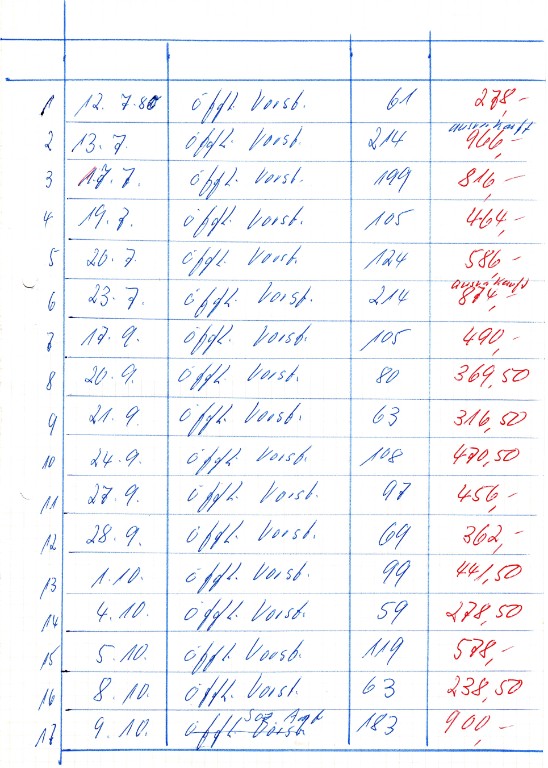 1 12. 7. 80 öffl. Vorst. 61 278,-
2 13. 7. öffl. Vorst. 214 ausverkauft 966,-
3 17. 7. öffl. Vorst. 199 816,-
4 19. 7. öffl. Vorst. 105 464,-
5 20. 7. öffl. Vorst. 124 586,-
6 23. 7. öffl. Vorst. 214 ausverkauft 874,-
7 17. 9. öffl. Vorst. 105 490,-
8 20. 9. öffl. Vorst. 80 369,50
9 21. 9. öffl. Vorst. 63 316,50
10 24. 9. öffl. Vorst. 108 470,50
11 27. 9. öffl. Vorst. 97 456,-
12 28. 9. öffl. Vorst. 69 362,-
13 1. 10. öffl. Vorst. 99 441,50
14 4. 10. öffl. Vorst. 59 278,50
15 5. 10. öffl. Vorst. 119 578,-
16 8. 10. öffl. Vorst. 63 238,50
17 9. 10. öffl. Vorst. Soz. Amt 183 900,-